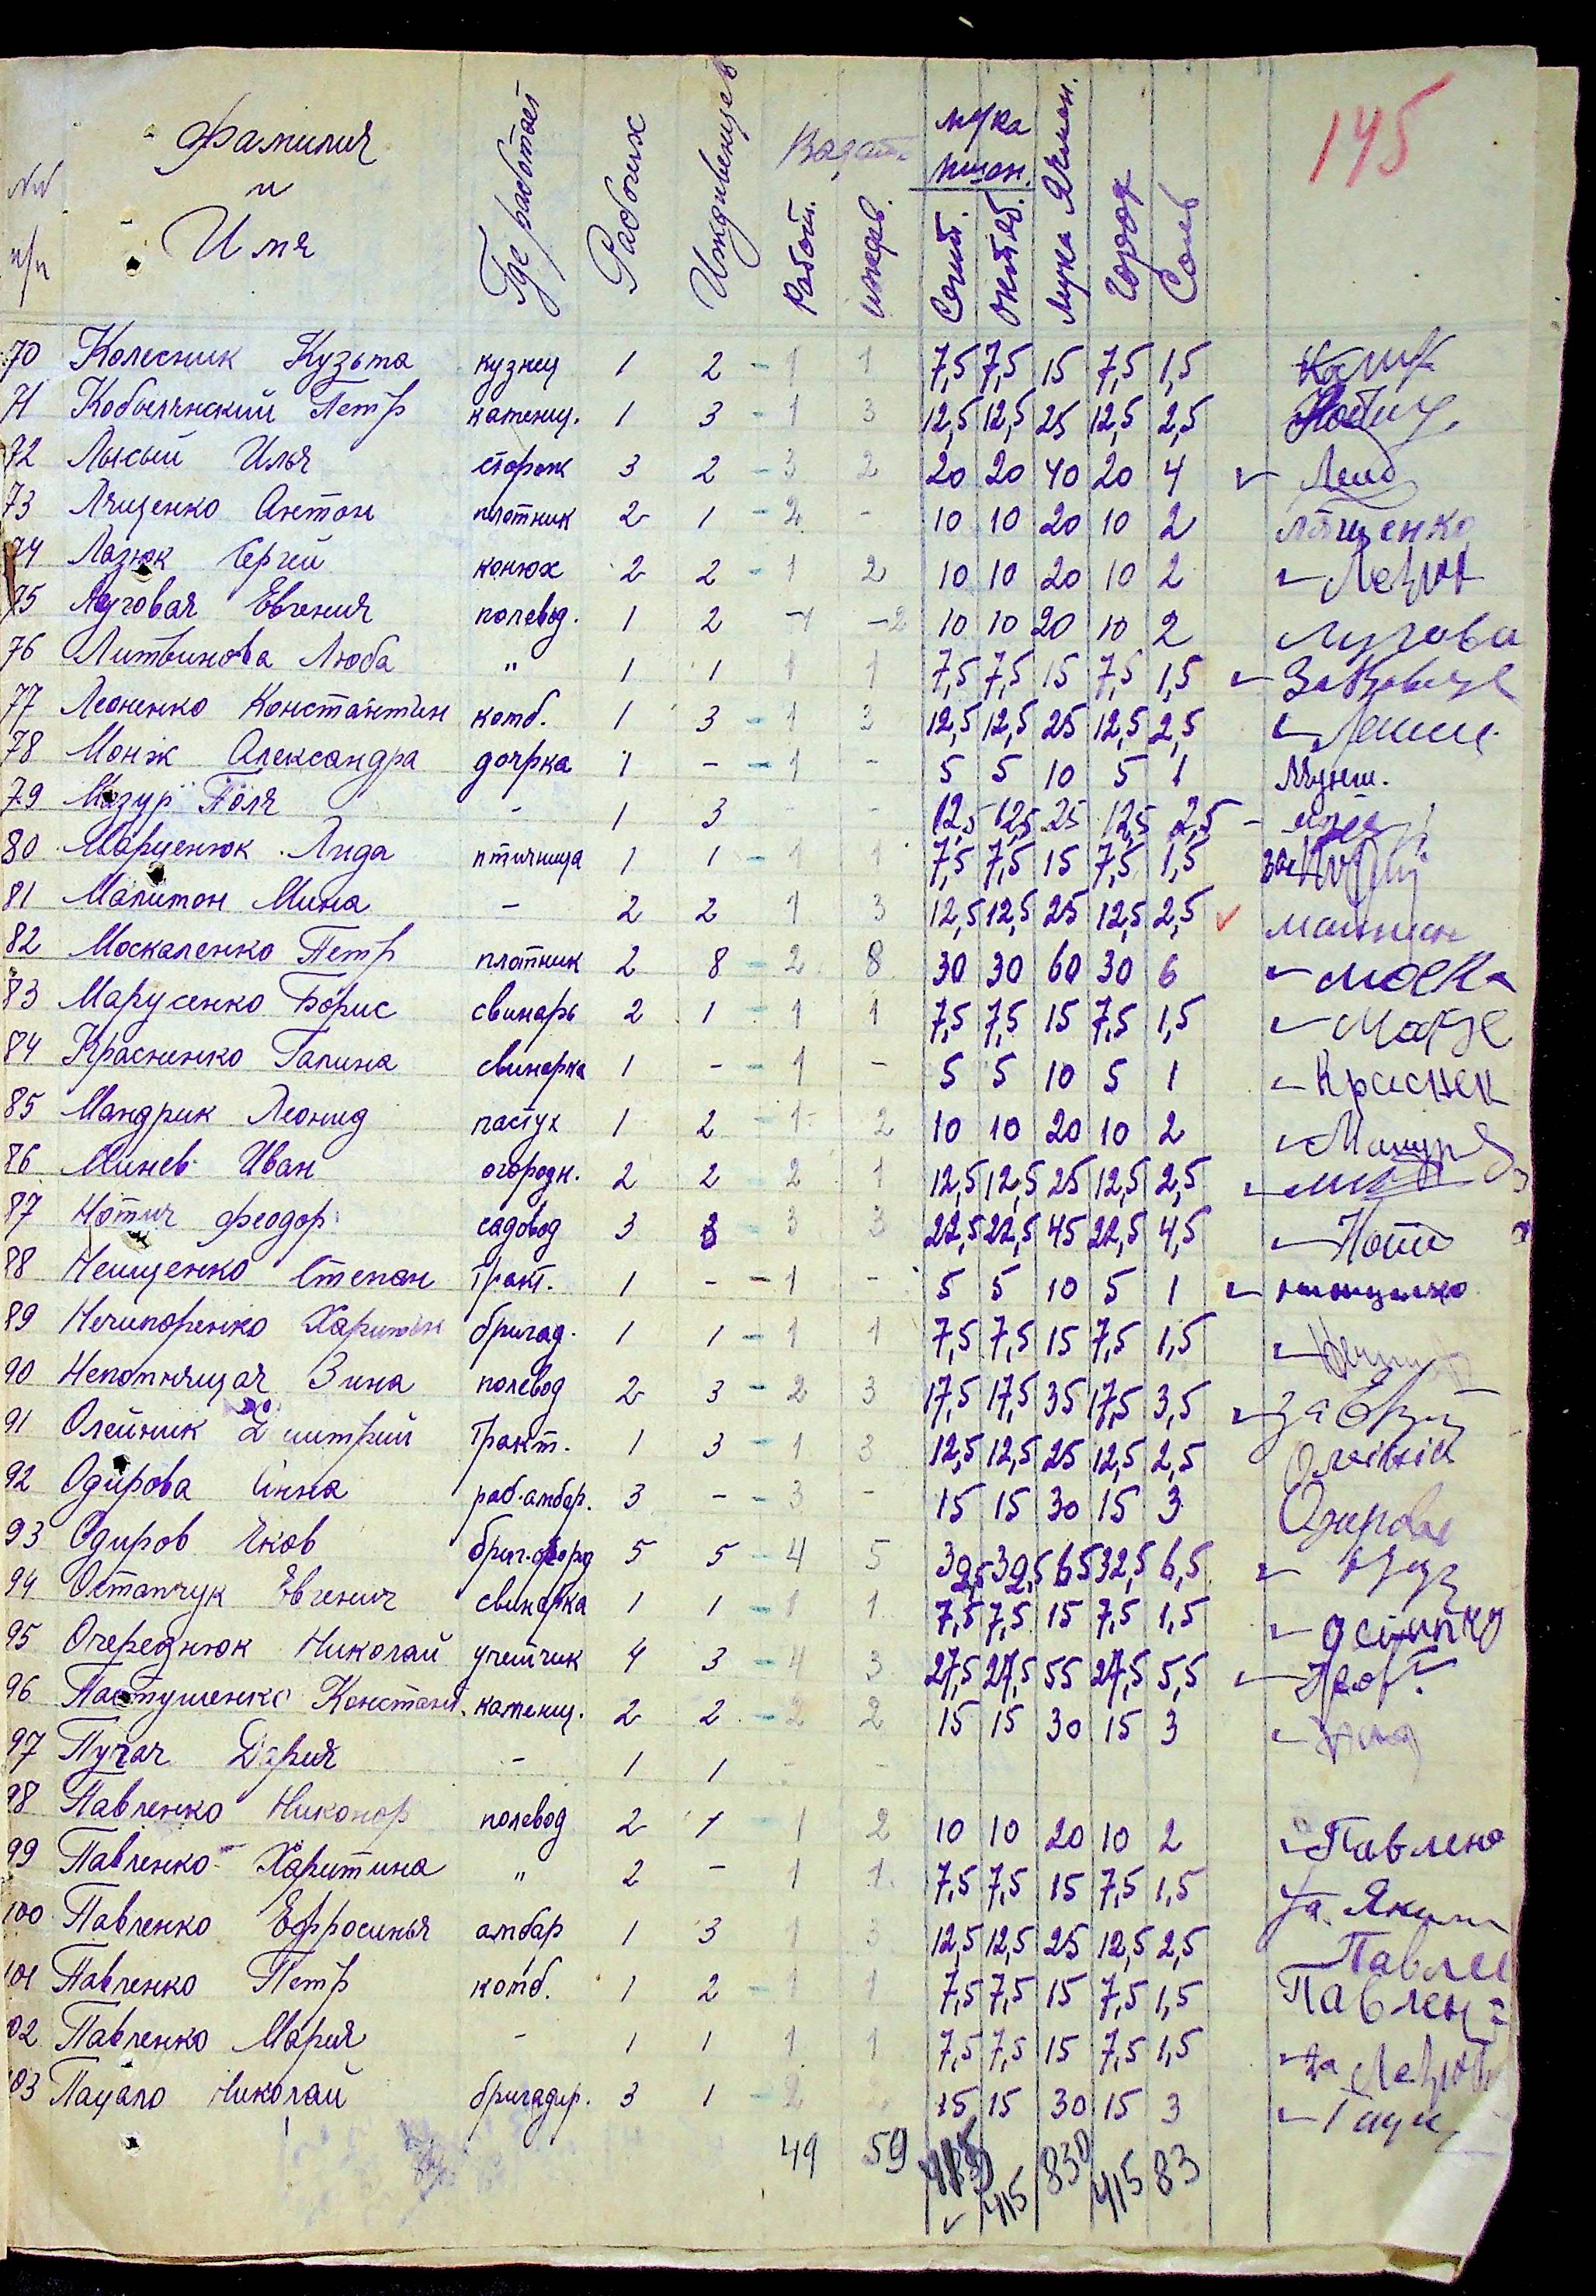 145
№№ п/п Фамилия и Имя Где работает Рабочих Иждивенцев Выдат. Работ. иждев. мука пшен. Сент. октяб. мука Ячмен. Горох Соль
70 Колесник Кузьма кузнец 1 2 - 1 1 7,5 7,5 15 7,5 1,5
71 Кобылянский Петр каменщ. 1 3 - 1 3 12,5 12,5 25 12,5 2,5
72 Лысый Илья сторож 3 2 - 3 2 20 20 40 20 4
73 Лященко Антон плотник 2 1 - 2 - 10 10 20 10 2 Лященко
74 Лазюк Сергей конюх 2 2 - 1 2 10 10 20 10 2 Лазюк
75 Луговая Евгения полевод. 1 2 -1 -2 10 10 20 10 2 Лугова
76 Литвинова Люба " 1 1 1 1 7,5 7,5 15 7,5 1,5
77 Леоненко Константин комб. 1 3 - 1 3 12,5 12,5 25 12,5 2,5
78 Монж Александра доярка 1 - - 1 - 5 5 10 5 1
79 Мазур Поля - 1 3 - - 12,5 12,5 25 12,5 2,5 -
80 Марценюк Лида птичница 1 1 - 1 1 7,5 7,5 15 7,5 1,5
81 Малитон Мина - 2 2 1 3 12,5 12,5 25 12,5 2,5
82 Москаленко Петр плотник 2 8 - 2 8 30 30 60 30 6 Моска
83 Марусенко Борис свинарь 2 1 - 1 1 7,5 7,5 15 7,5 1,5
84 Красненко Галина свинарка 1 - - 1 - 5 5 10 5 1 Краснек
85 Мандрик Леонид пастух 1 2 - 1 - 2 10 10 20 10 2
86 Минев Иван огородн. 2 2 2 1 12,5 12,5 25 12,5 2,5
87 Нотич Феодор садовод 3 3 3 3 22,5 22,5 45 22,5 4,5 Ноти
88 Нещенко Степан Тракт. 1 - - 1 - 5 5 10 5 1
89 Нечипоренко Харитон бригад. 1 1 - 1 1 7,5 7,5 15 7,5 1,5
90 Непомнящая Зина полевод 2 3 - 2 3 17,5 17,5 35 17,5 3,5
91 Олейник Дмитрий Тракт. 1 3 - 1 3 12,5 12,5 25 12,5 2,5
92 Одирова Анна раб. амбар. 3 - - 3 - 15 15 30 15 3
93 Одиров Яков 5 5 - 4 5 32,5 32,5 65 32,5 6,5
94 Остапчук Евгения свинарка 1 1 - 1 1 7,5 7,5 15 7,5 1,5
95 Очереднюк Николай учетчик 4 3 - 4 3 27,5 27,5 55 27,5 5,5
96 Пастушенко Констант. каменщ. 2 2 - 2 2 15 15 30 15 3
97 Пугач Дария - 1 1 - -
98 Павленко Никонор полевод 2 1 - 1 2 10 10 20 10 2 Павлено
99 Павленко Харитина " 2 - 1 1 7,5 7,5 15 7,5 1,5
100 Павленко Ефросинья амбар 1 3 1 3 12,5 12,5 25 12,5 2,5 Павлен
101 Павленко Петр комб. 1 2 - 1 1 7,5 7,5 15 7,5 1,5 Павлен
102 Павленко Мария - 1 1 1 1 7,5 7,5 15 7,5 1,5 за Лазюк
103 Пацало Николай бригадир. 3 1 - 2 2 15 15 30 15 3
49 59 415 415 830 415 83